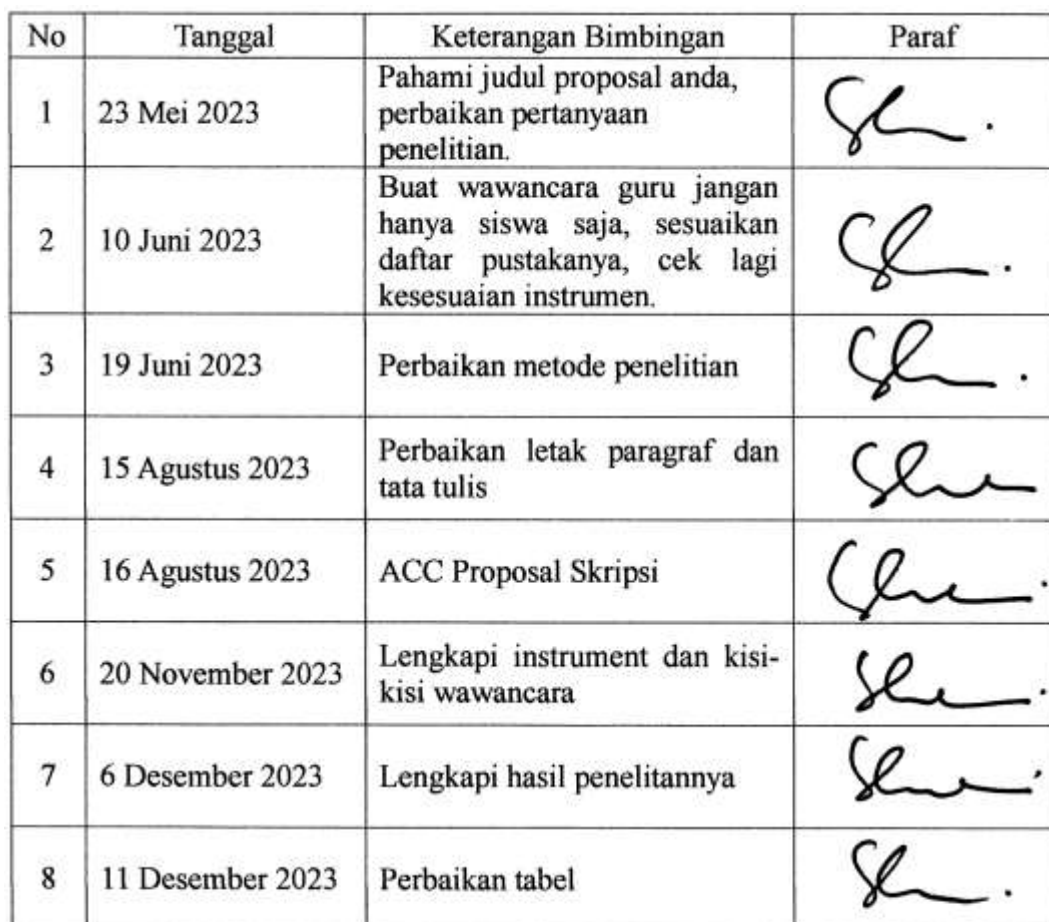 No Tanggal Keterangan Bimbingan Paraf
1 23 Mei 2023 Pahami judul proposal anda,
perbaikan pertanyaan
penelitian.
2 10 Juni 2023 Buat wawancara guru jangan
hanya siswa saja, sesuaikan
daftar pustakanya, cek lagi
kesesuaian instrumen.
3 19 Juni 2023 Perbaikan metode penelitian
4 15 Agustus 2023 Perbaikan letak paragraf dan
tata tulis
5 16 Agustus 2023 ACC Proposal Skripsi
6 20 November 2023 Lengkapi instrument dan kisi-
kisi wawancara
7 6 Desember 2023 Lengkapi hasil penelitannya
8 11 Desember 2023 Perbaikan tabel